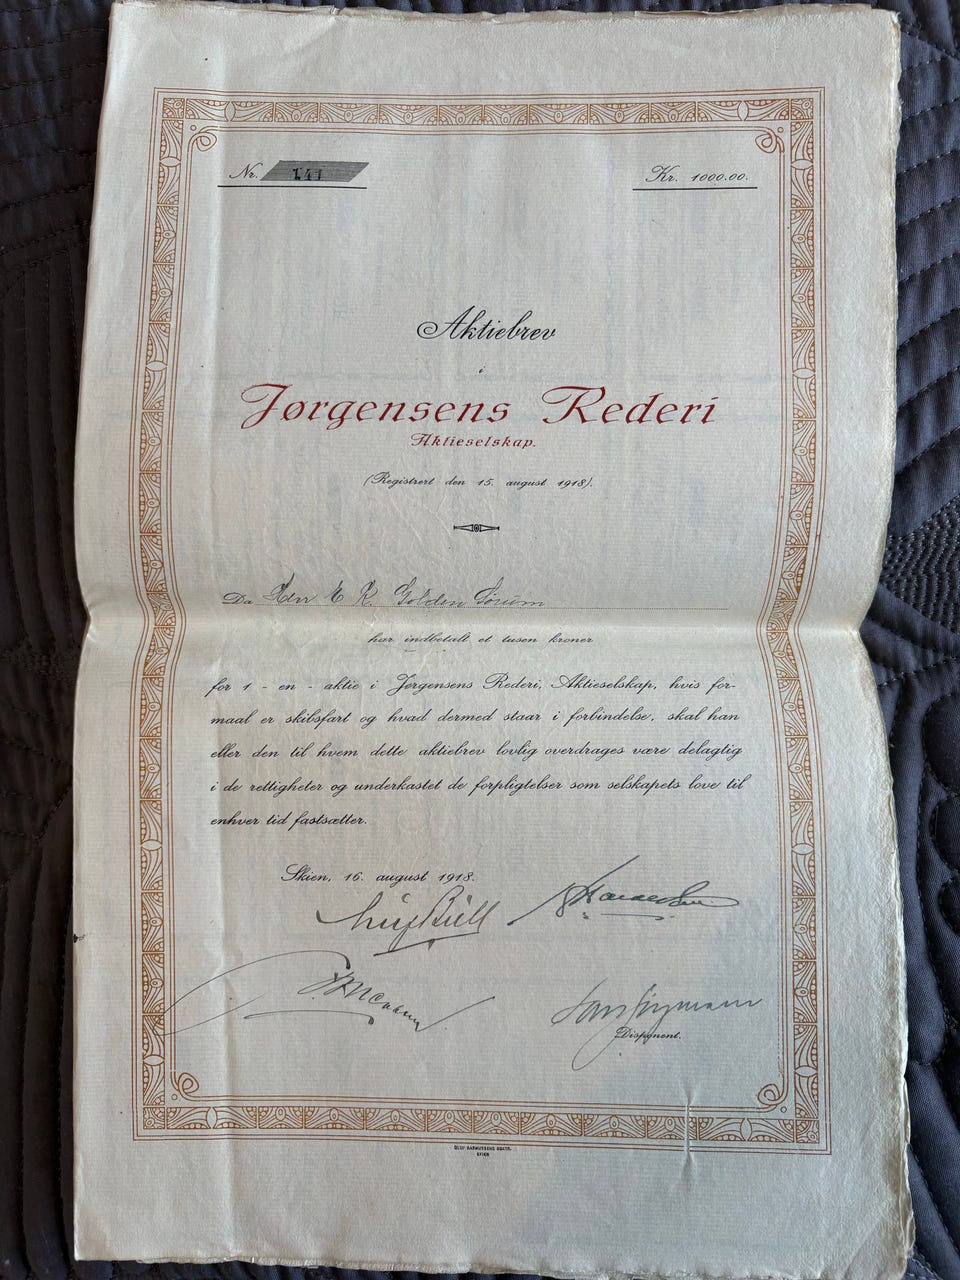 Nr. 141
Kr. 1000.00.
Aktiebrev
i
Jørgensens Rederi
Aktieselskap.
(Registrert den 15. august 1918).
Da Herr E K. Golden Sørum
har indbetalt et tusen kroner
for 1 - en - aktie i Jørgensens Rederi, Aktieselskap, hvis for-
maal er skibsfart og hvad dermed staar i forbindelse, skal han
eller den til hvem dette aktiebrev lovlig overdrages være delagtig
i de rettigheter og underkastet de forpligtelser som selskapets love til
enhver tid fastsætter.
Skien, 16. august 1918.
Disponent.
OLUF RASMUSSENS BOKTR.
SKIEN